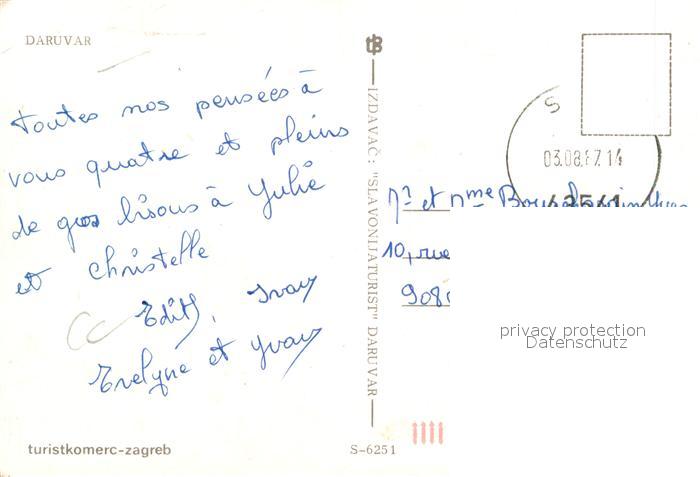 DARUVAR
Toutes nos pensées à
vous quatre et pleins
de gros bisous à Julie
et Christelle
Edith, Ivan
Evelyne et Yvan
turistkomerc-zagreb
IZDAVAČ: "SLAVONIJATURIST" DARUVAR
S-6251
S
03.08.87.14
43541
Mr et Mme
10, rue
908
privacy protection
Datenschutz